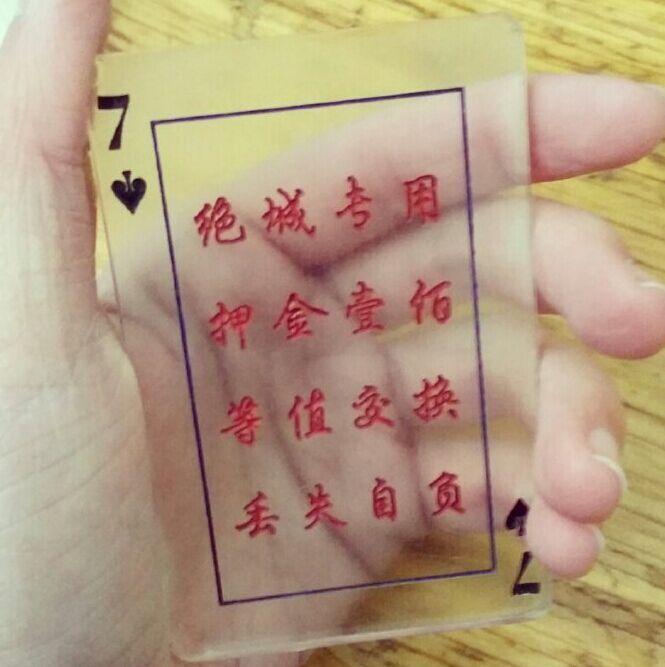 7
绝城专用
押金壹佰
等值交换
丢失自负
7